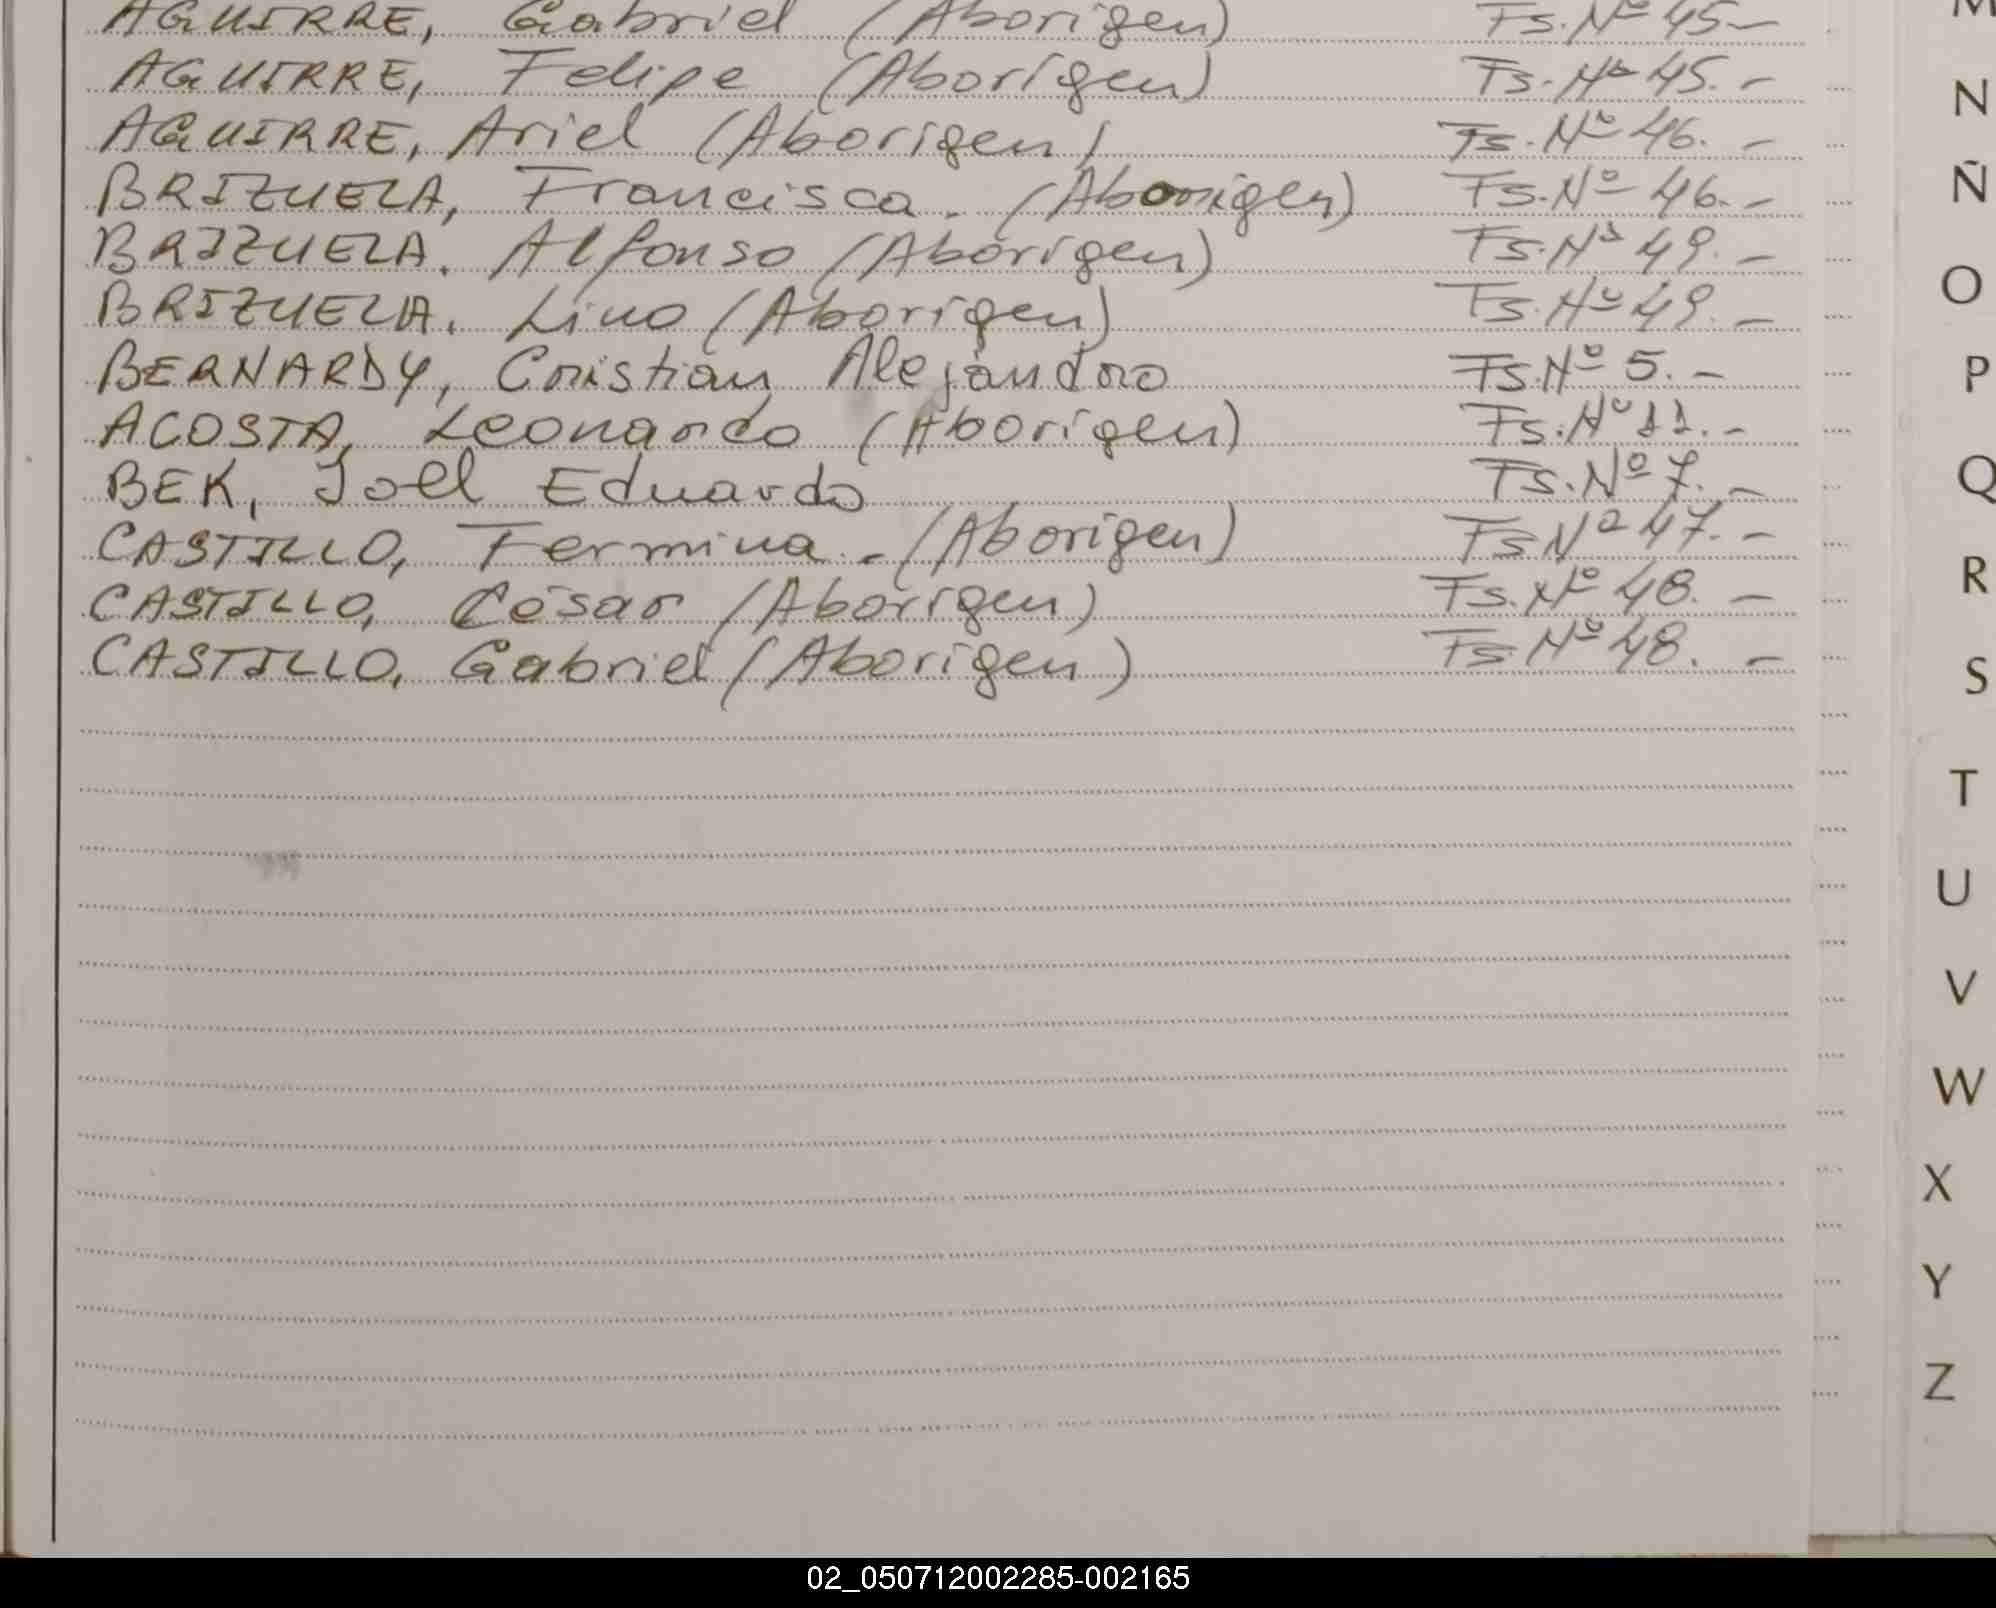 AGUIRRE, Gabriel (Aborigen) Fs. Nº 45 -
AGUIRRE, Felipe (Aborígen) Fs. Nº 45. -
AGUIRRE, Ariel (Aborigen) Fs. Nº 46. -
BRIZUELA, Francisca. (Aborigen) Fs. Nº 46. -
BRIZUELA. Alfonso (Aborigen) Fs. Nº 49. -
BRIZUELA. Lino (Aborigen) Fs. Nº 49. -
BERNARDY, Cristian Alejandro Fs. Nº 5. -
ACOSTA, Leonardo (Aborigen) Fs. Nº 11. -
BEK, Joel Eduardo Fs. Nº 7. -
CASTILLO, Fermina. - (Aborigen) Fs Nº 47. -
CASTILLO, César (Aborigen) Fs. Nº 48. -
CASTILLO, Gabriel (Aborigen) Fs. Nº 48. -
M
N
Ñ
O
P
Q
R
S
T
U
V
W
X
Y
Z
02_050712002285-002165